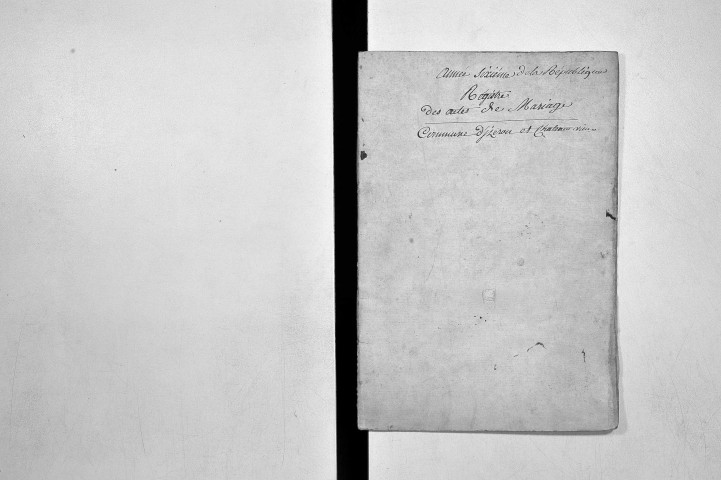 Année Sixième de la République
Registre
des actes de Mariage
Commune d'izeron et Chateauvieu